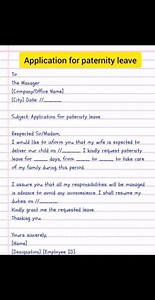 Application for paternity leave
To
The Manager
[Company/Office Name]
[City] Date: //________
Subject: Application for paternity leave
Respected Sir/Madam,
I would like to inform you that my wife is expected to
deliver our child on //________. I kindly request paternity
leave for _____ days, from _____ to _____ to take care
of my family during this period.
I assure you that all my responsibilities will be managed
in advance to avoid any inconvenience. I shall resume my
duties on //________.
Kindly grant me the requested leave.
Thanking you.
Yours sincerely,
[Name]
[Designation] [Employee ID]